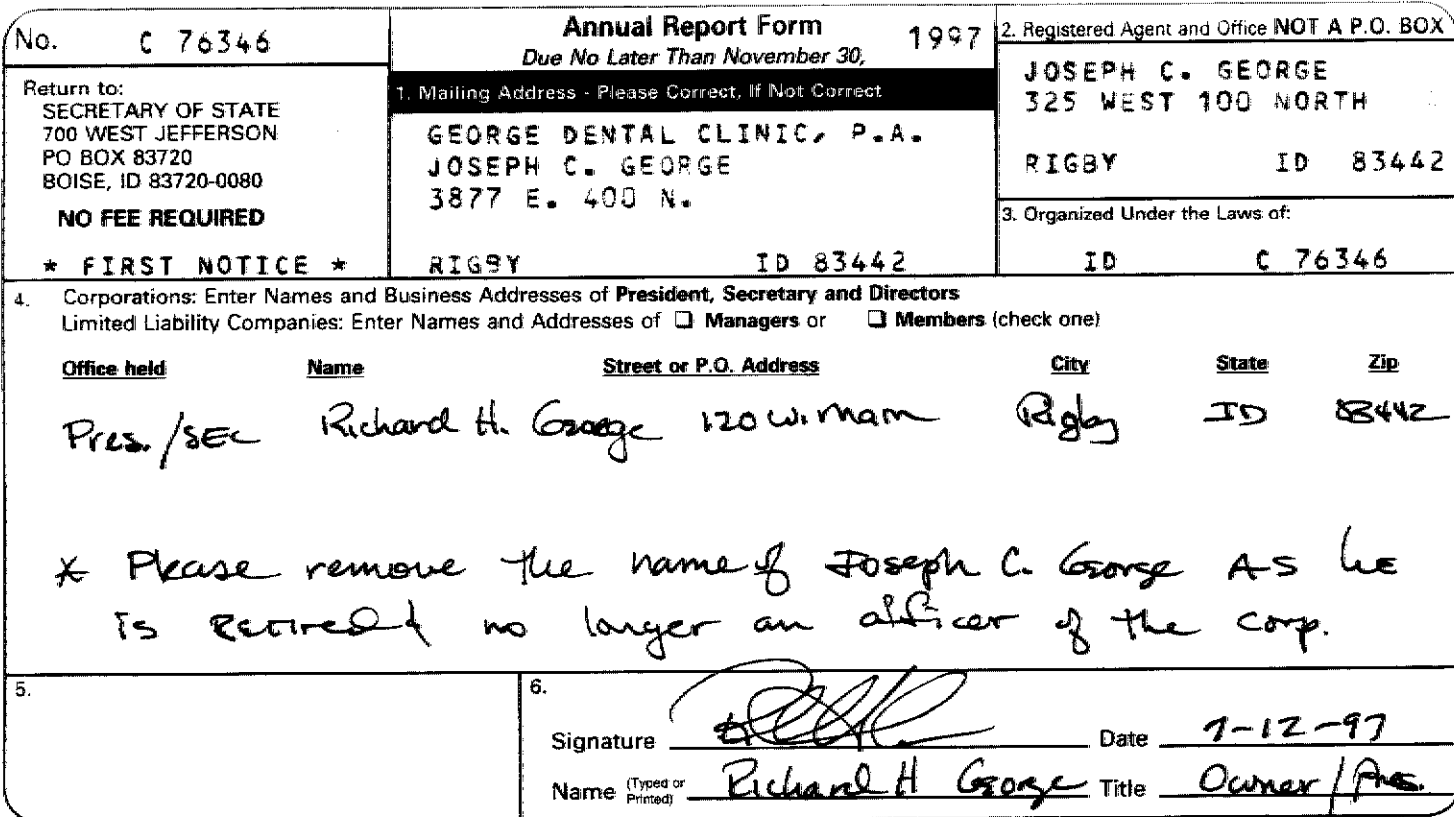 No. C 76346
Return to:
SECRETARY OF STATE
700 WEST JEFFERSON
PO BOX 83720
BOISE, ID 83720-0080
NO FEE REQUIRED
* FIRST NOTICE *
Annual Report Form 1997
Due No Later Than November 30,
1. Mailing Address - Please Correct, If Not Correct
GEORGE DENTAL CLINIC, P.A.
JOSEPH C. GEORGE
3877 E. 400 N.
RIGBY ID 83442
2. Registered Agent and Office NOT A P.O. BOX
JOSEPH C. GEORGE
325 WEST 100 NORTH
RIGBY ID 83442
3. Organized Under the Laws of:
ID C 76346
4. Corporations: Enter Names and Business Addresses of President, Secretary and Directors
Limited Liability Companies: Enter Names and Addresses of ❑ Managers or ❑ Members (check one)
Office held Name Street or P.O. Address City State Zip
Pres./SEC Richard H. George 120 W. Main Rigby ID 83442
* Please remove the name of Joseph C. George AS he
is retired & no longer an officer of the corp.
5.
6.
Signature Date 7-12-97
Name (Typed or Printed) Richard H George Title Owner/Pres.